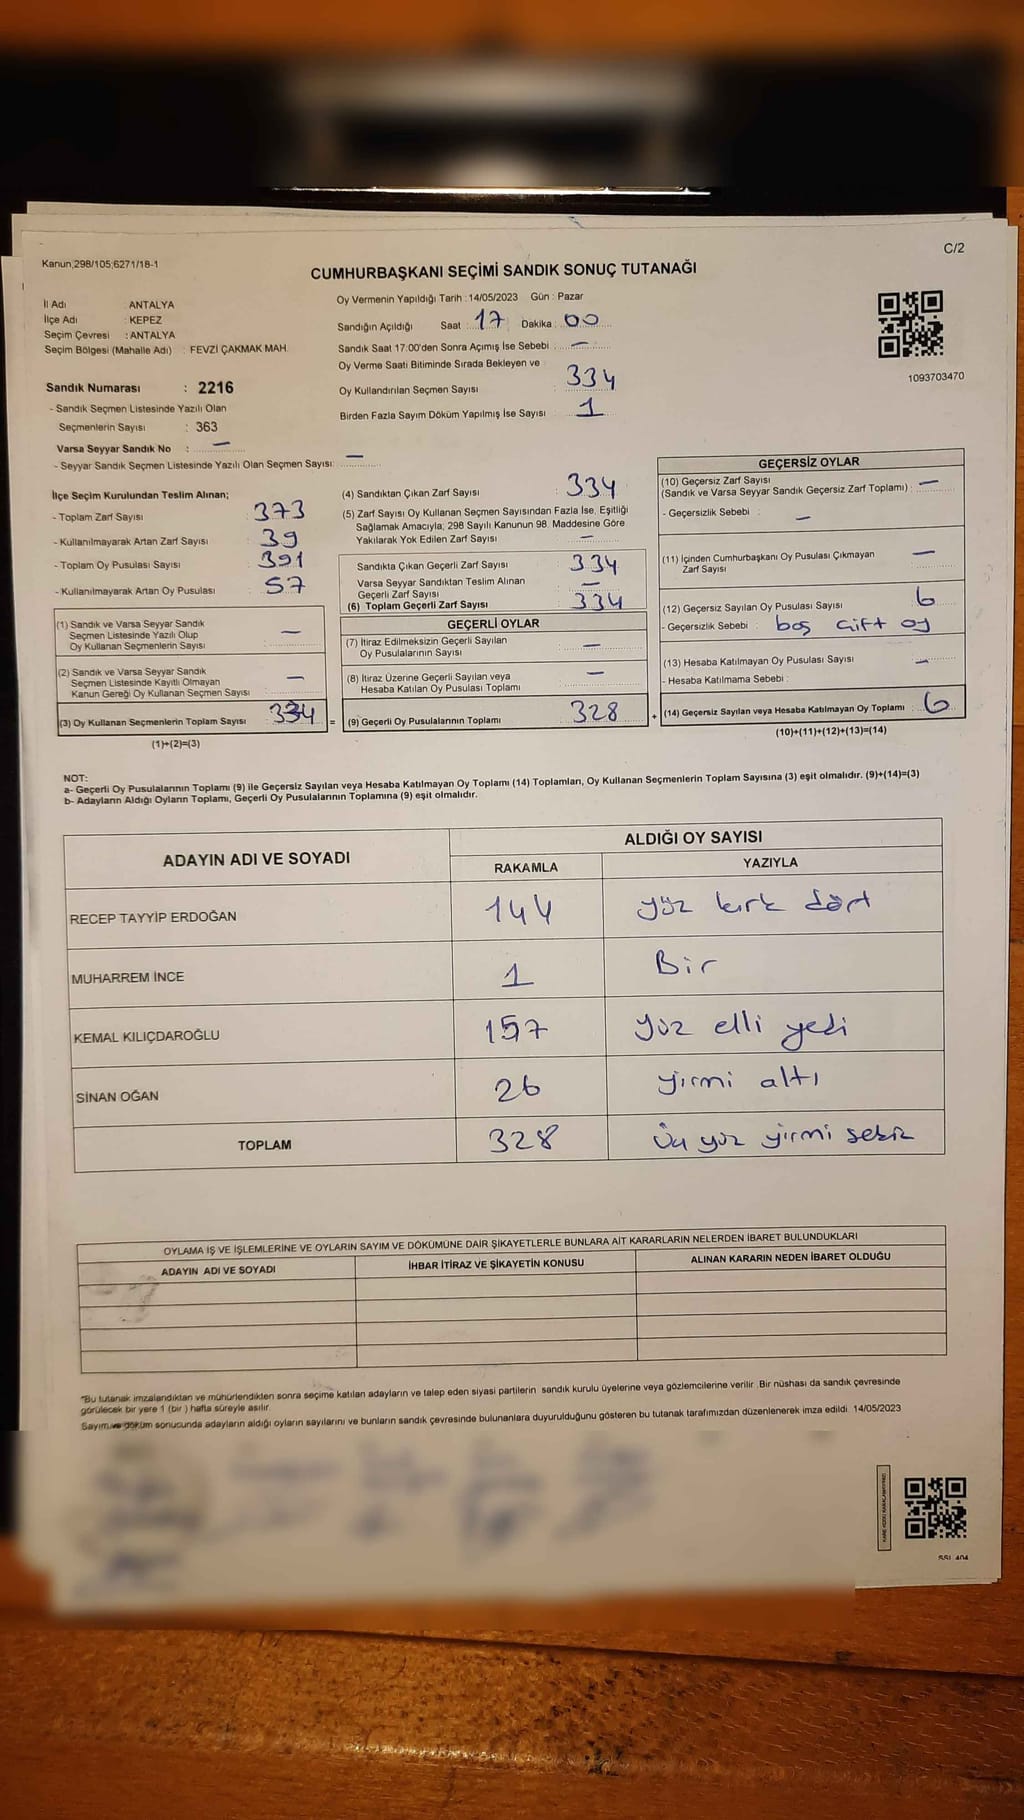 C/2
Kanun;298/105;6271/18-1
CUMHURBAŞKANI SEÇİMİ SANDIK SONUÇ TUTANAĞI
İl Adı : ANTALYA
İlçe Adı : KEPEZ
Seçim Çevresi : ANTALYA
Seçim Bölgesi (Mahalle Adı) : FEVZİ ÇAKMAK MAH.
Sandık Numarası : 2216
- Sandık Seçmen Listesinde Yazılı Olan
Seçmenlerin Sayısı : 363
Varsa Seyyar Sandık No : —
- Seyyar Sandık Seçmen Listesinde Yazılı Olan Seçmen Sayısı: —
Oy Vermenin Yapıldığı Tarih : 14/05/2023 Gün : Pazar
Sandığın Açıldığı Saat : 17 Dakika : 00
Sandık Saat 17:00'den Sonra Açımış İse Sebebi : —
Oy Verme Saati Bitiminde Sırada Bekleyen ve
Oy Kullandırılan Seçmen Sayısı : 334
Birden Fazla Sayım Döküm Yapılmış İse Sayısı : 1
1093703470
İlçe Seçim Kurulundan Teslim Alınan;
- Toplam Zarf Sayısı : 373
- Kullanılmayarak Artan Zarf Sayısı : 39
- Toplam Oy Pusulası Sayısı : 391
- Kullanılmayarak Artan Oy Pusulası : 57
(1) Sandık ve Varsa Seyyar Sandık
Seçmen Listesinde Yazılı Olup
Oy Kullanan Seçmenlerin Sayısı : —
(2) Sandık ve Varsa Seyyar Sandık
Seçmen Listesinde Kayıtlı Olmayan
Kanun Gereği Oy Kullanan Seçmen Sayısı : —
(3) Oy Kullanan Seçmenlerin Toplam Sayısı : 334 =
(1)+(2)=(3)
(4) Sandıktan Çıkan Zarf Sayısı : 334
(5) Zarf Sayısı Oy Kullanan Seçmen Sayısından Fazla İse, Eşitliği
Sağlamak Amacıyla; 298 Sayılı Kanunun 98. Maddesine Göre
Yakılarak Yok Edilen Zarf Sayısı : —
Sandıkta Çıkan Geçerli Zarf Sayısı : 334
Varsa Seyyar Sandıktan Teslim Alınan
Geçerli Zarf Sayısı : —
(6) Toplam Geçerli Zarf Sayısı : 334
GEÇERLİ OYLAR
(7) İtiraz Edilmeksizin Geçerli Sayılan
Oy Pusulalarının Sayısı : —
(8) İtiraz Üzerine Geçerli Sayılan veya
Hesaba Katılan Oy Pusulası Toplamı : —
(9) Geçerli Oy Pusulalarının Toplamı : 328 +
GEÇERSİZ OYLAR
(10) Geçersiz Zarf Sayısı
(Sandık ve Varsa Seyyar Sandık Geçersiz Zarf Toplamı) : —
- Geçersizlik Sebebi : —
(11) İçinden Cumhurbaşkanı Oy Pusulası Çıkmayan
Zarf Sayısı : —
(12) Geçersiz Sayılan Oy Pusulası Sayısı : 6
- Geçersizlik Sebebi : boş çift oy
(13) Hesaba Katılmayan Oy Pusulası Sayısı : —
- Hesaba Katılmama Sebebi :
(14) Geçersiz Sayılan veya Hesaba Katılmayan Oy Toplamı : 6
(10)+(11)+(12)+(13)=(14)
NOT:
a- Geçerli Oy Pusulalarının Toplamı (9) ile Geçersiz Sayılan veya Hesaba Katılmayan Oy Toplamı (14) Toplamları, Oy Kullanan Seçmenlerin Toplam Sayısına (3) eşit olmalıdır. (9)+(14)=(3)
b- Adayların Aldığı Oyların Toplamı, Geçerli Oy Pusulalarının Toplamına (9) eşit olmalıdır.
ADAYIN ADI VE SOYADI ALDIĞI OY SAYISI
RAKAMLA YAZIYLA
RECEP TAYYİP ERDOĞAN 144 yüz kırk dört
MUHARREM İNCE 1 Bir
KEMAL KILIÇDAROĞLU 157 yüz elli yedi
SİNAN OĞAN 26 yirmi altı
TOPLAM 328 üç yüz yirmi sekiz
OYLAMA İŞ VE İŞLEMLERİNE VE OYLARIN SAYIM VE DÖKÜMÜNE DAİR ŞİKAYETLERLE BUNLARA AİT KARARLARIN NELERDEN İBARET BULUNDUKLARI
ADAYIN ADI VE SOYADI İHBAR İTİRAZ VE ŞİKAYETİN KONUSU ALINAN KARARIN NEDEN İBARET OLDUĞU
*Bu tutanak imzalandıktan ve mühürlendikten sonra seçime katılan adayların ve talep eden siyasi partilerin sandık kurulu üyelerine veya gözlemcilerine verilir .Bir nüshası da sandık çevresinde
görülecek bir yere 1 (bir ) hafta süreyle asılır.
Sayım ve döküm sonucunda adayların aldığı oyların sayılarını ve bunların sandık çevresinde bulunanlara duyurulduğunu gösteren bu tutanak tarafımızdan düzenlenerek imza edildi. 14/05/2023